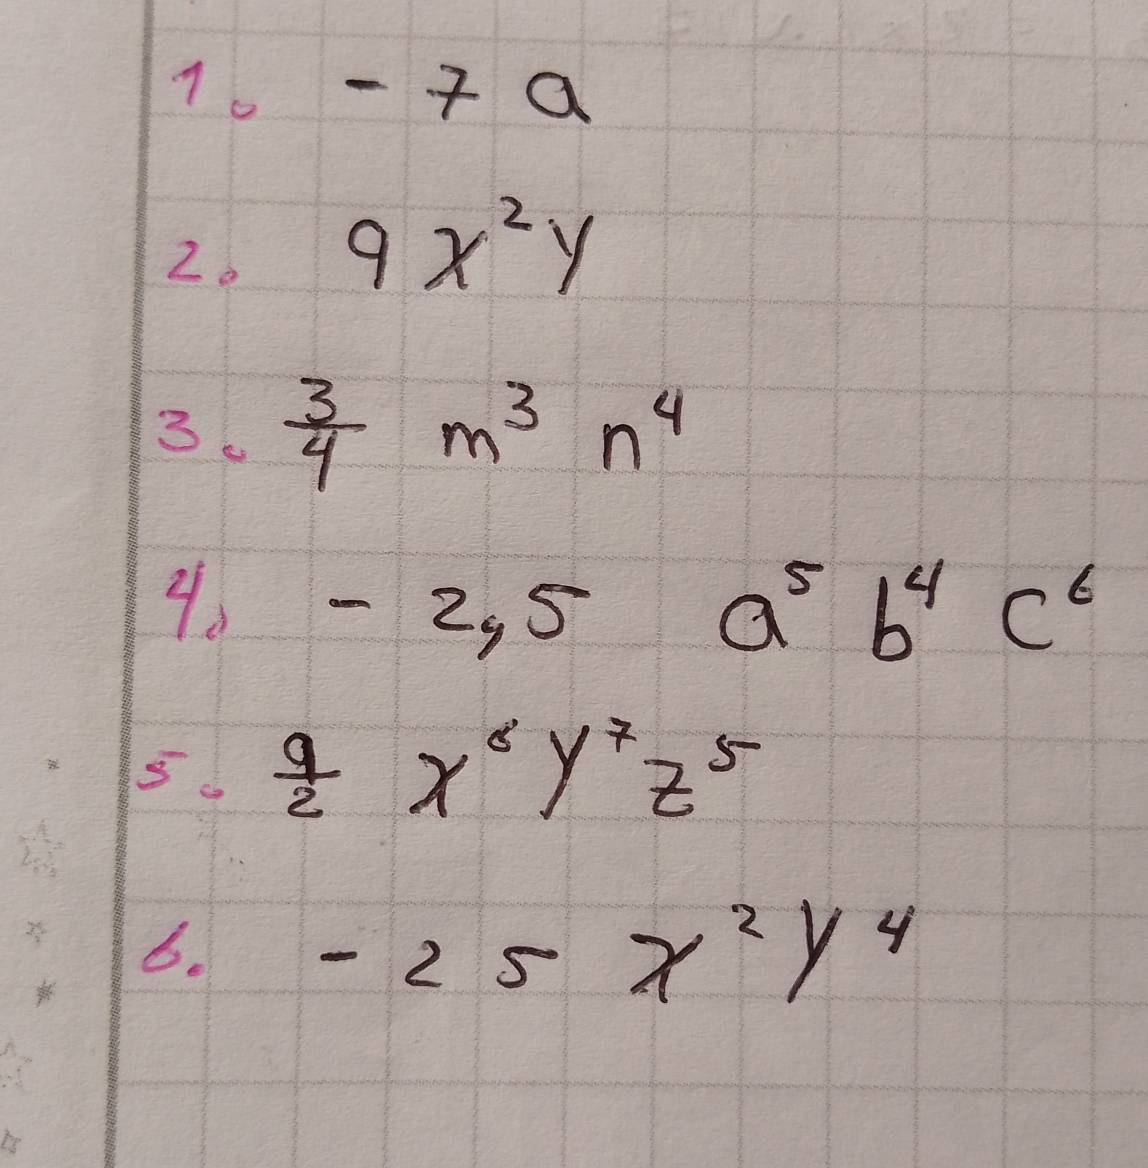 1. - 7 a
2. 9 x² y
3. 3/4 m³ n⁴
4. - 2,5 a⁵ b⁴ c⁶
5. 9/2 x⁶ y⁷ z⁵
6. - 2 5 x² y⁴